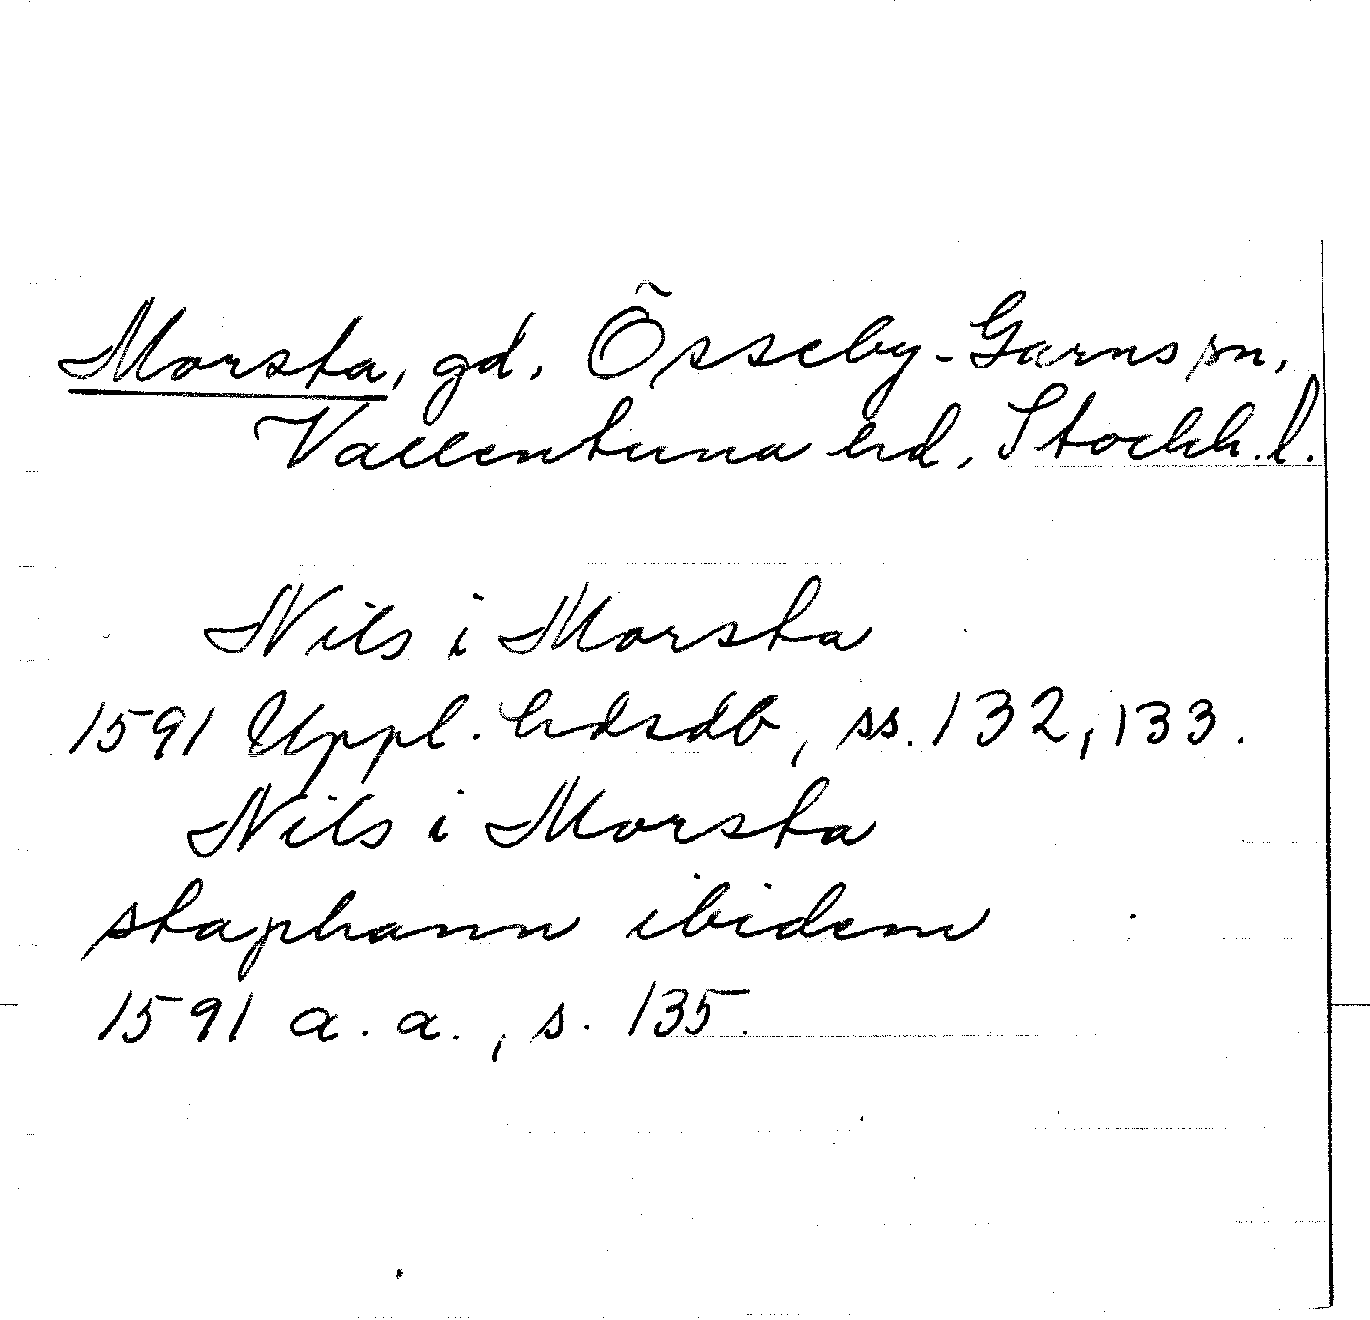 Morsta, gd, Össeby-Garns sn,
Vallentuna hd, Stockh.l.
Nils i Morsta
1591 Uppl. hdsdb, ss. 132, 133.
Nils i Morsta
staphann ibidem
1591 a.a., s. 135.